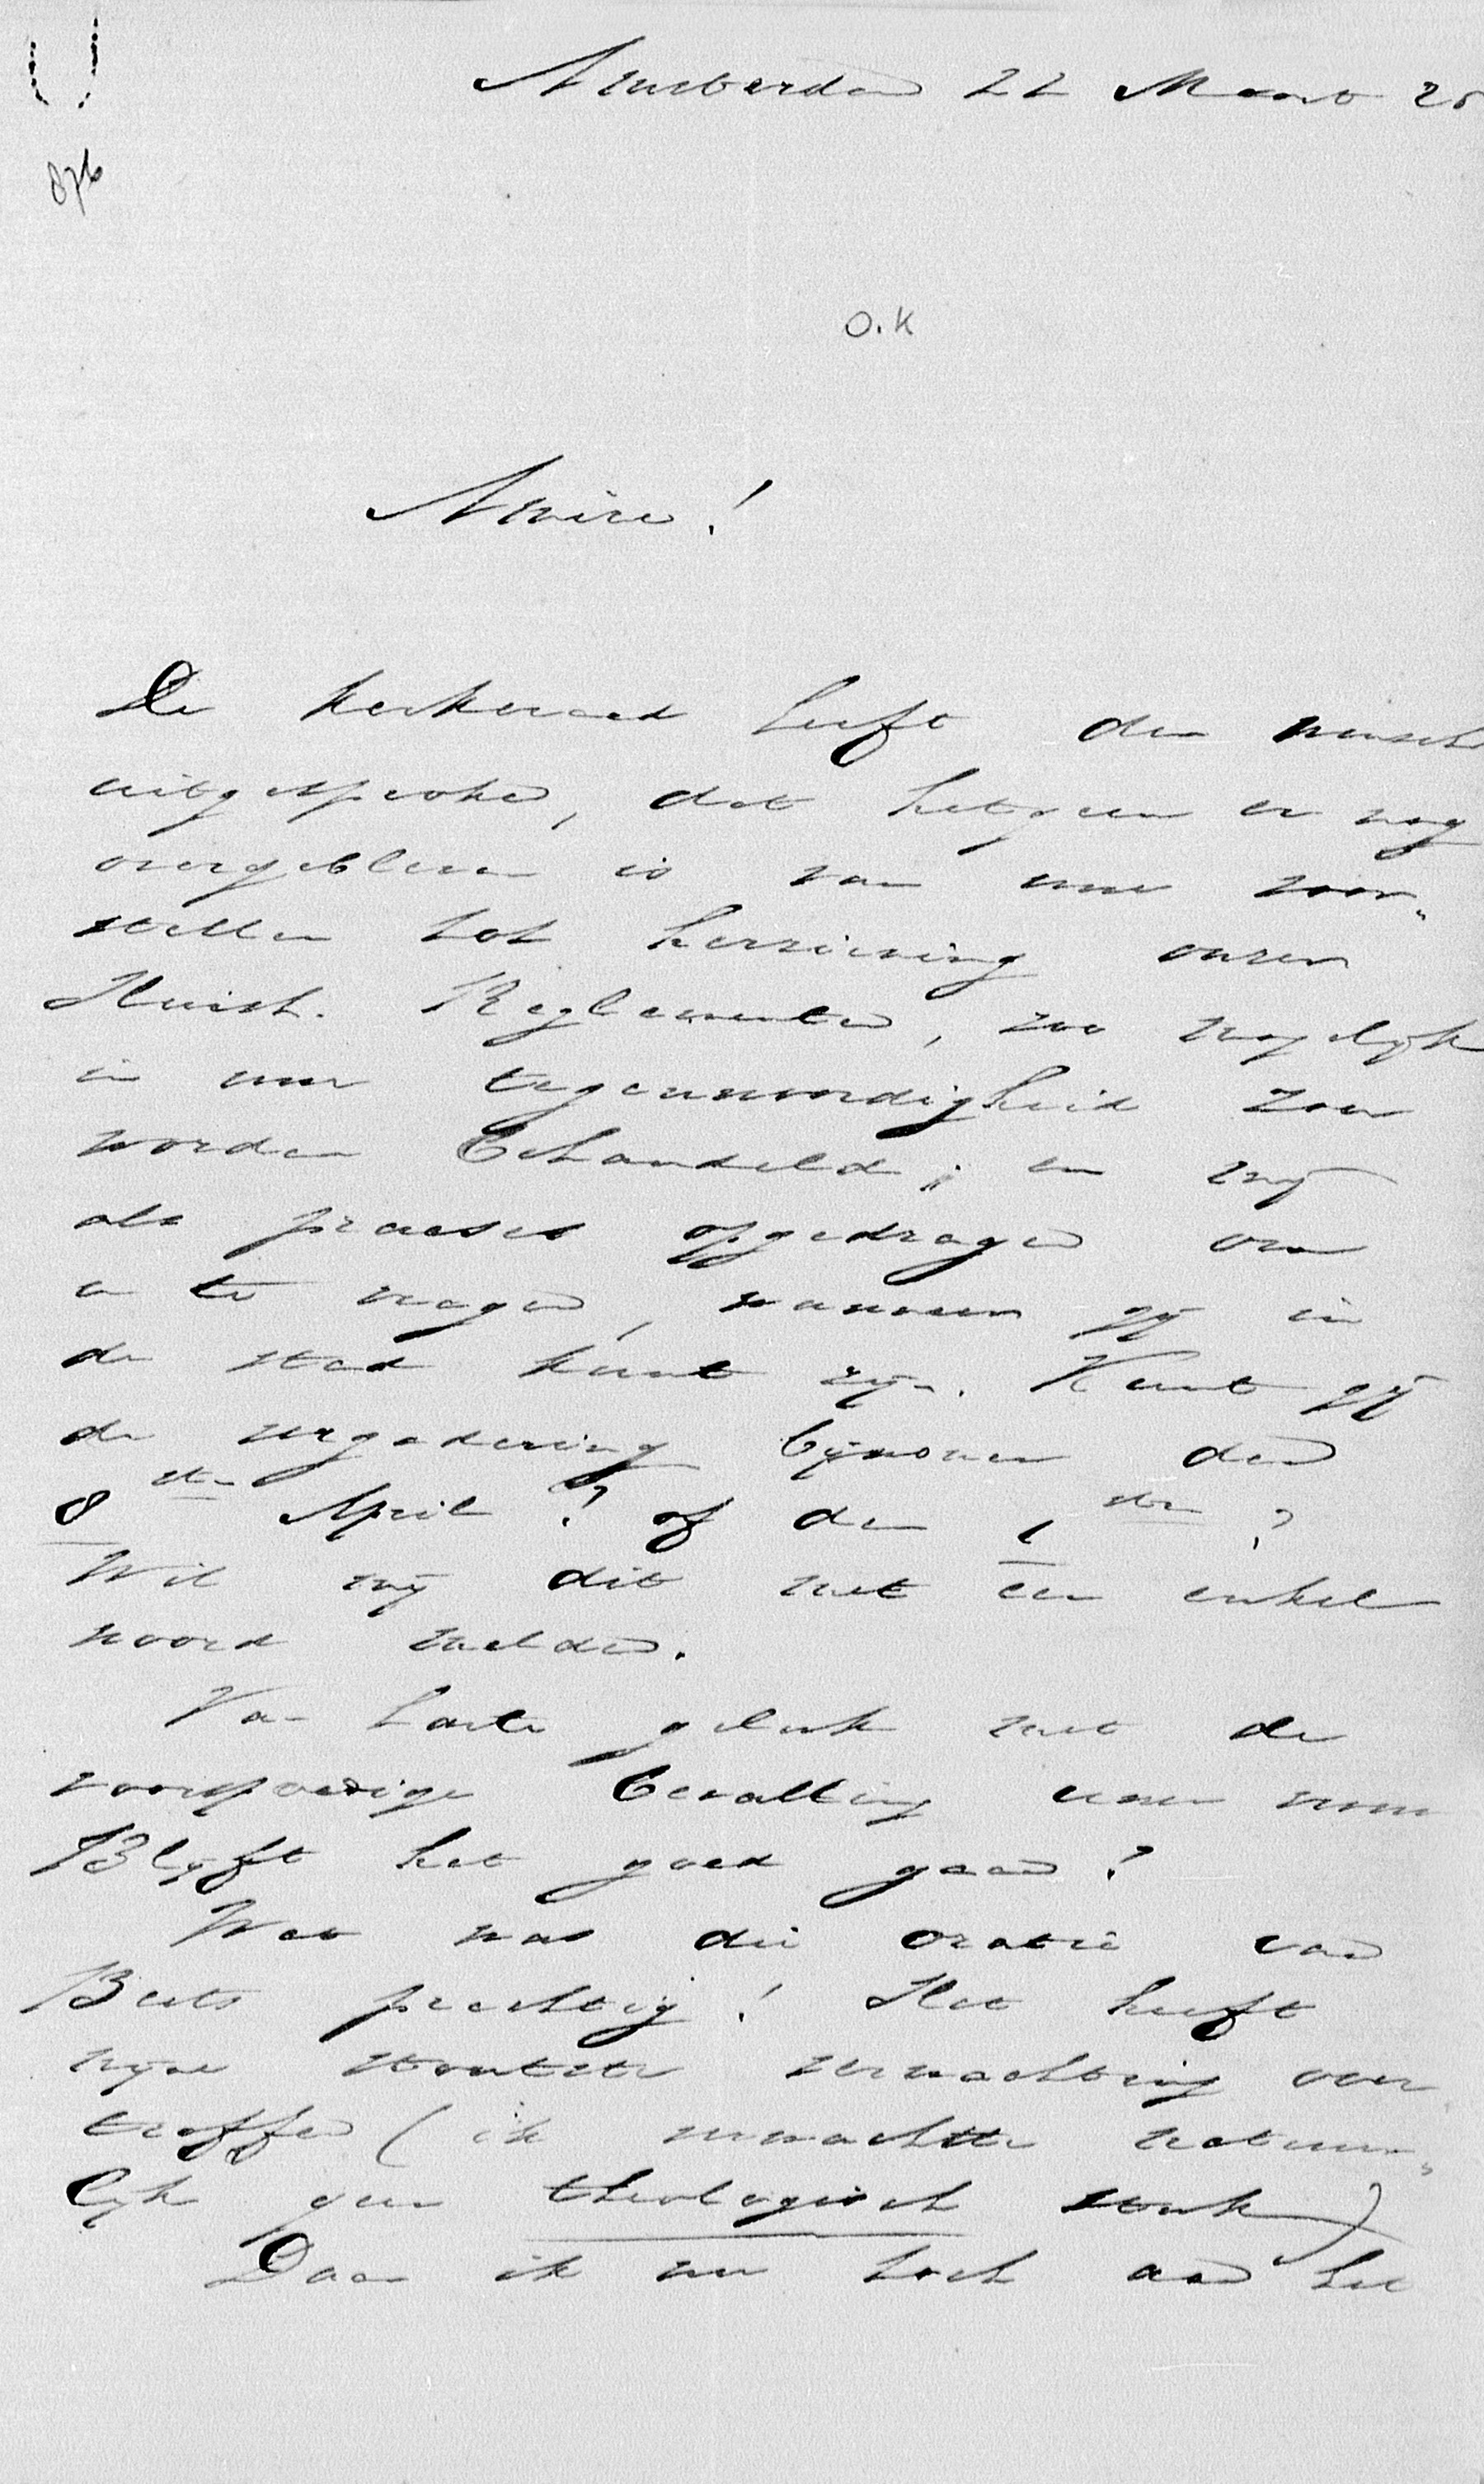 Amsterdam 22 Maart
876
O.K
Amice!
De kerkeraad heeft den wensch
uitgesproken, dat hetgeen er nog
overgebleven is van uwe voor„
stellen tot herziening onzer
Huish. Reglementen, zoo mogelijk
in uwe tegenwoordigheid zou
worden behandeld; en mij
als praeses opgedragen om
u te vragen, wanneer gij in
de stad kunt zijn. Kunt gij
de vergadering bijwonen den
8sten April? of den 1sten?
Wil mij dit met een enkel
woord melden.
Van harte geluk met de
voorspoedige bevalling uwer vrouw
Blijft het goed gaan?
Wat was die oratie van
Beets prachtig! Het heeft
mijne stoutste verwachting over
troffen (ik verwachtte natuur„
lijk geen theologisch stuk)
Daar ik nu toch aan het